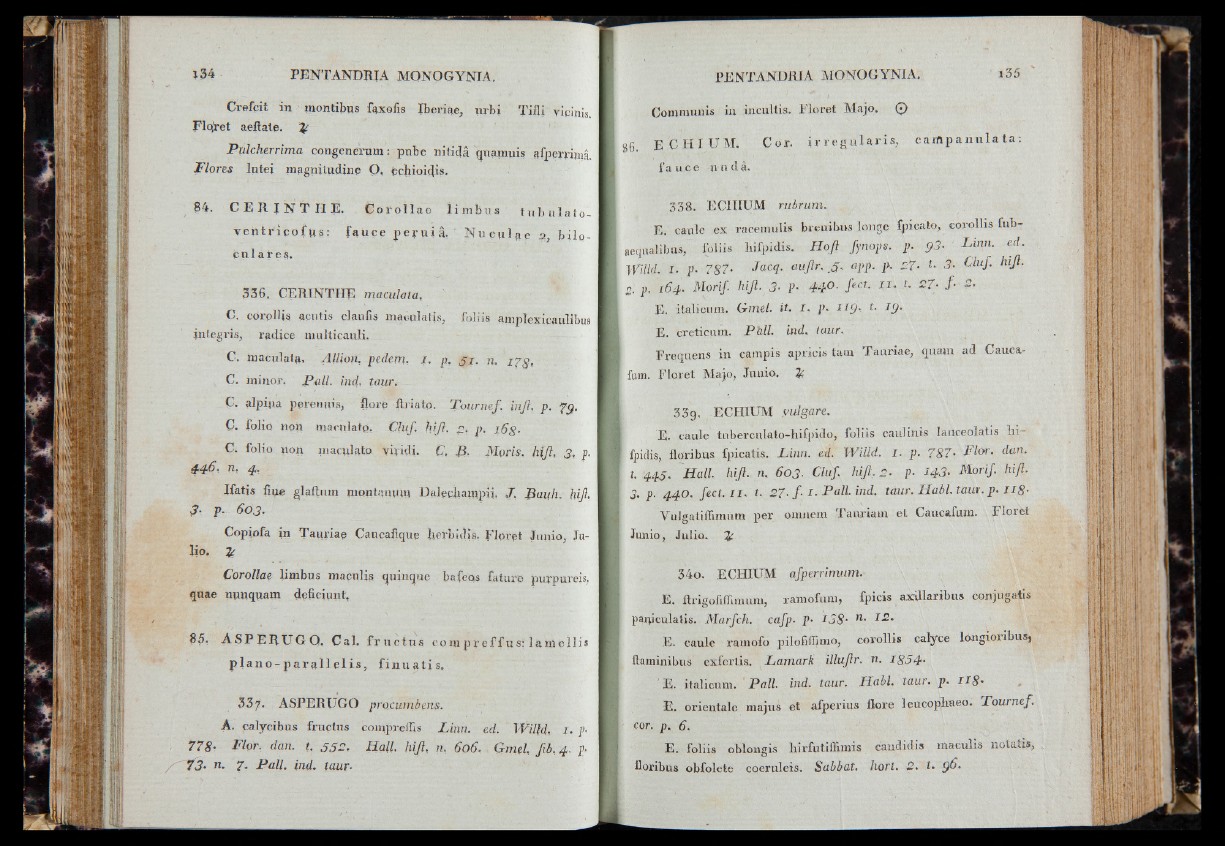 134 PENTANDRIA MONOGYNIA.
Crefcit in montibus faxofis Iberiae, urbi Tifli vicinis.
Floret aeftate. ♃
Pulcherrima congenerum: pube nitidâ quamuis afperrimâ.
Flores lutei magnitudine O. echioidis.
84. CERINTHE. Corollae limbus tubulato-
ventricofus: fauce peruiâ. Nuculae 2, bilo-
culares.
336. CERINTHE maculata.
C. corollis acutis claufis maculatis, foliis amplexicaulibus
integris, radice multicauli.
C. maculata. Allion. pedem. 1. p. 51. n. 178.
C. minor. Pall. ind. taur.
C. alpina perennis, flore ftriato. Tournef. inft. p. 79.
C. folio non maculato. Cluf. hift. 2. p. 168.
C. folio non maculato viridi. C. B. Moris. hift. 3. p.
446. n. 4.
Ifatis fiue glaftum montanum Dalechampii. J. Bauh. hift.
3. p. 603.
Copiofa in Tauriae Caucafique herbidis. Floret Junio, Ju-
lio. ♃
Corollae limbus maculis quinque bafeos fature purpureis,
quae nunquam deficiunt.
85. ASPERUGO. Cal. fructus compreffus: lamellis
plano-parallelis, finuatis.
337. ASPERUGO procumbens.
A. calycibus fructus compreffis Linn. ed. Willd. 1. p.
778. Flor. dan. t. 552. Hall. hift. n. 606. Gmel. fib. 4. p.
73. n. 7. Pall. ind. taur.
PENTANDRIA MONOGYNIA. 135
Communis in incultis. Floret Majo. ☉
86. ECHIUM. Cor. irregularis, campanulata:
fauce nudâ.
338. ECHIUM rubrum.
E. caule ex racemulis breuibus longe fpicato, corollis fub-
aequalibus, foliis hifpidis. Hoft fynops. p. 93. Linn. ed.
Willd. 1. p. 787. Jacq. auftr. 5. app. p. 27. t. 3. Cluf. hift.
2. p. 164. Morif. hift. 3. p. 440. fect. 11. t. 27. f. 2.
E. italicum. Gmel. it. 1. p. 119. t. 19.
E. creticum. Pall. ind. taur.
Frequens in campis apricis tam Tauriae, quam ad Cauca-
fum. Floret Majo, Junio. ♃
339. ECHIUM vulgare.
E. caule tuberculato-hifpido, foliis caulinis lanceolatis hi-
fpidis, floribus fpicatis. Linn. ed. Willd. 1. p. 787. Flor. dan.
t. 445. Hall. hift. n. 603. Cluf. hift. 2. p. 143. Morif. hift.
3. p. 440. fect. 11. t. 27. f. 1. Pall. ind. taur. Habl. taur. p. 118.
Vulgatiffimum per omnem Tauriam et Caucafum. Floret
Junio, Julio. ♃
340. ECHIUM afperrimum.
E. ftrigofiffimum, ramofum, fpicis axillaribus conjugatis
paniculatis. Marfch. cafp. p. 138. n. 12.
E. caule ramofo pilofiffimo, corollis calyce longioribus,
ftaminibus exfertis. Lamark illuftr. n. 1854.
E. italicum. Pall. ind. taur. Habl. taur. p. 118.
E. orientale majus et afperius flore leucophaeo. Tournef.
cor. p. 6.
E. foliis oblongis hirfutiffimis candidis maculis notatis,
floribus obfolete coeruleis. Sabbat. hort. 2. t. 96.